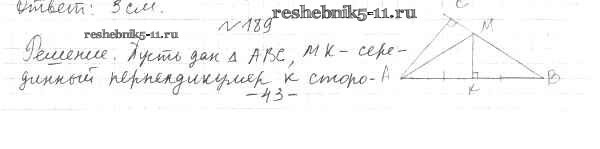 Ответ: 3 см.
reshebnik5-11.ru
№ 189
C
M
reshebnik5-11.ru
Решение. Пусть дан ∆ ABC, MK - сере-
динный перпендикуляр к сторо-
A
K
B
-43-